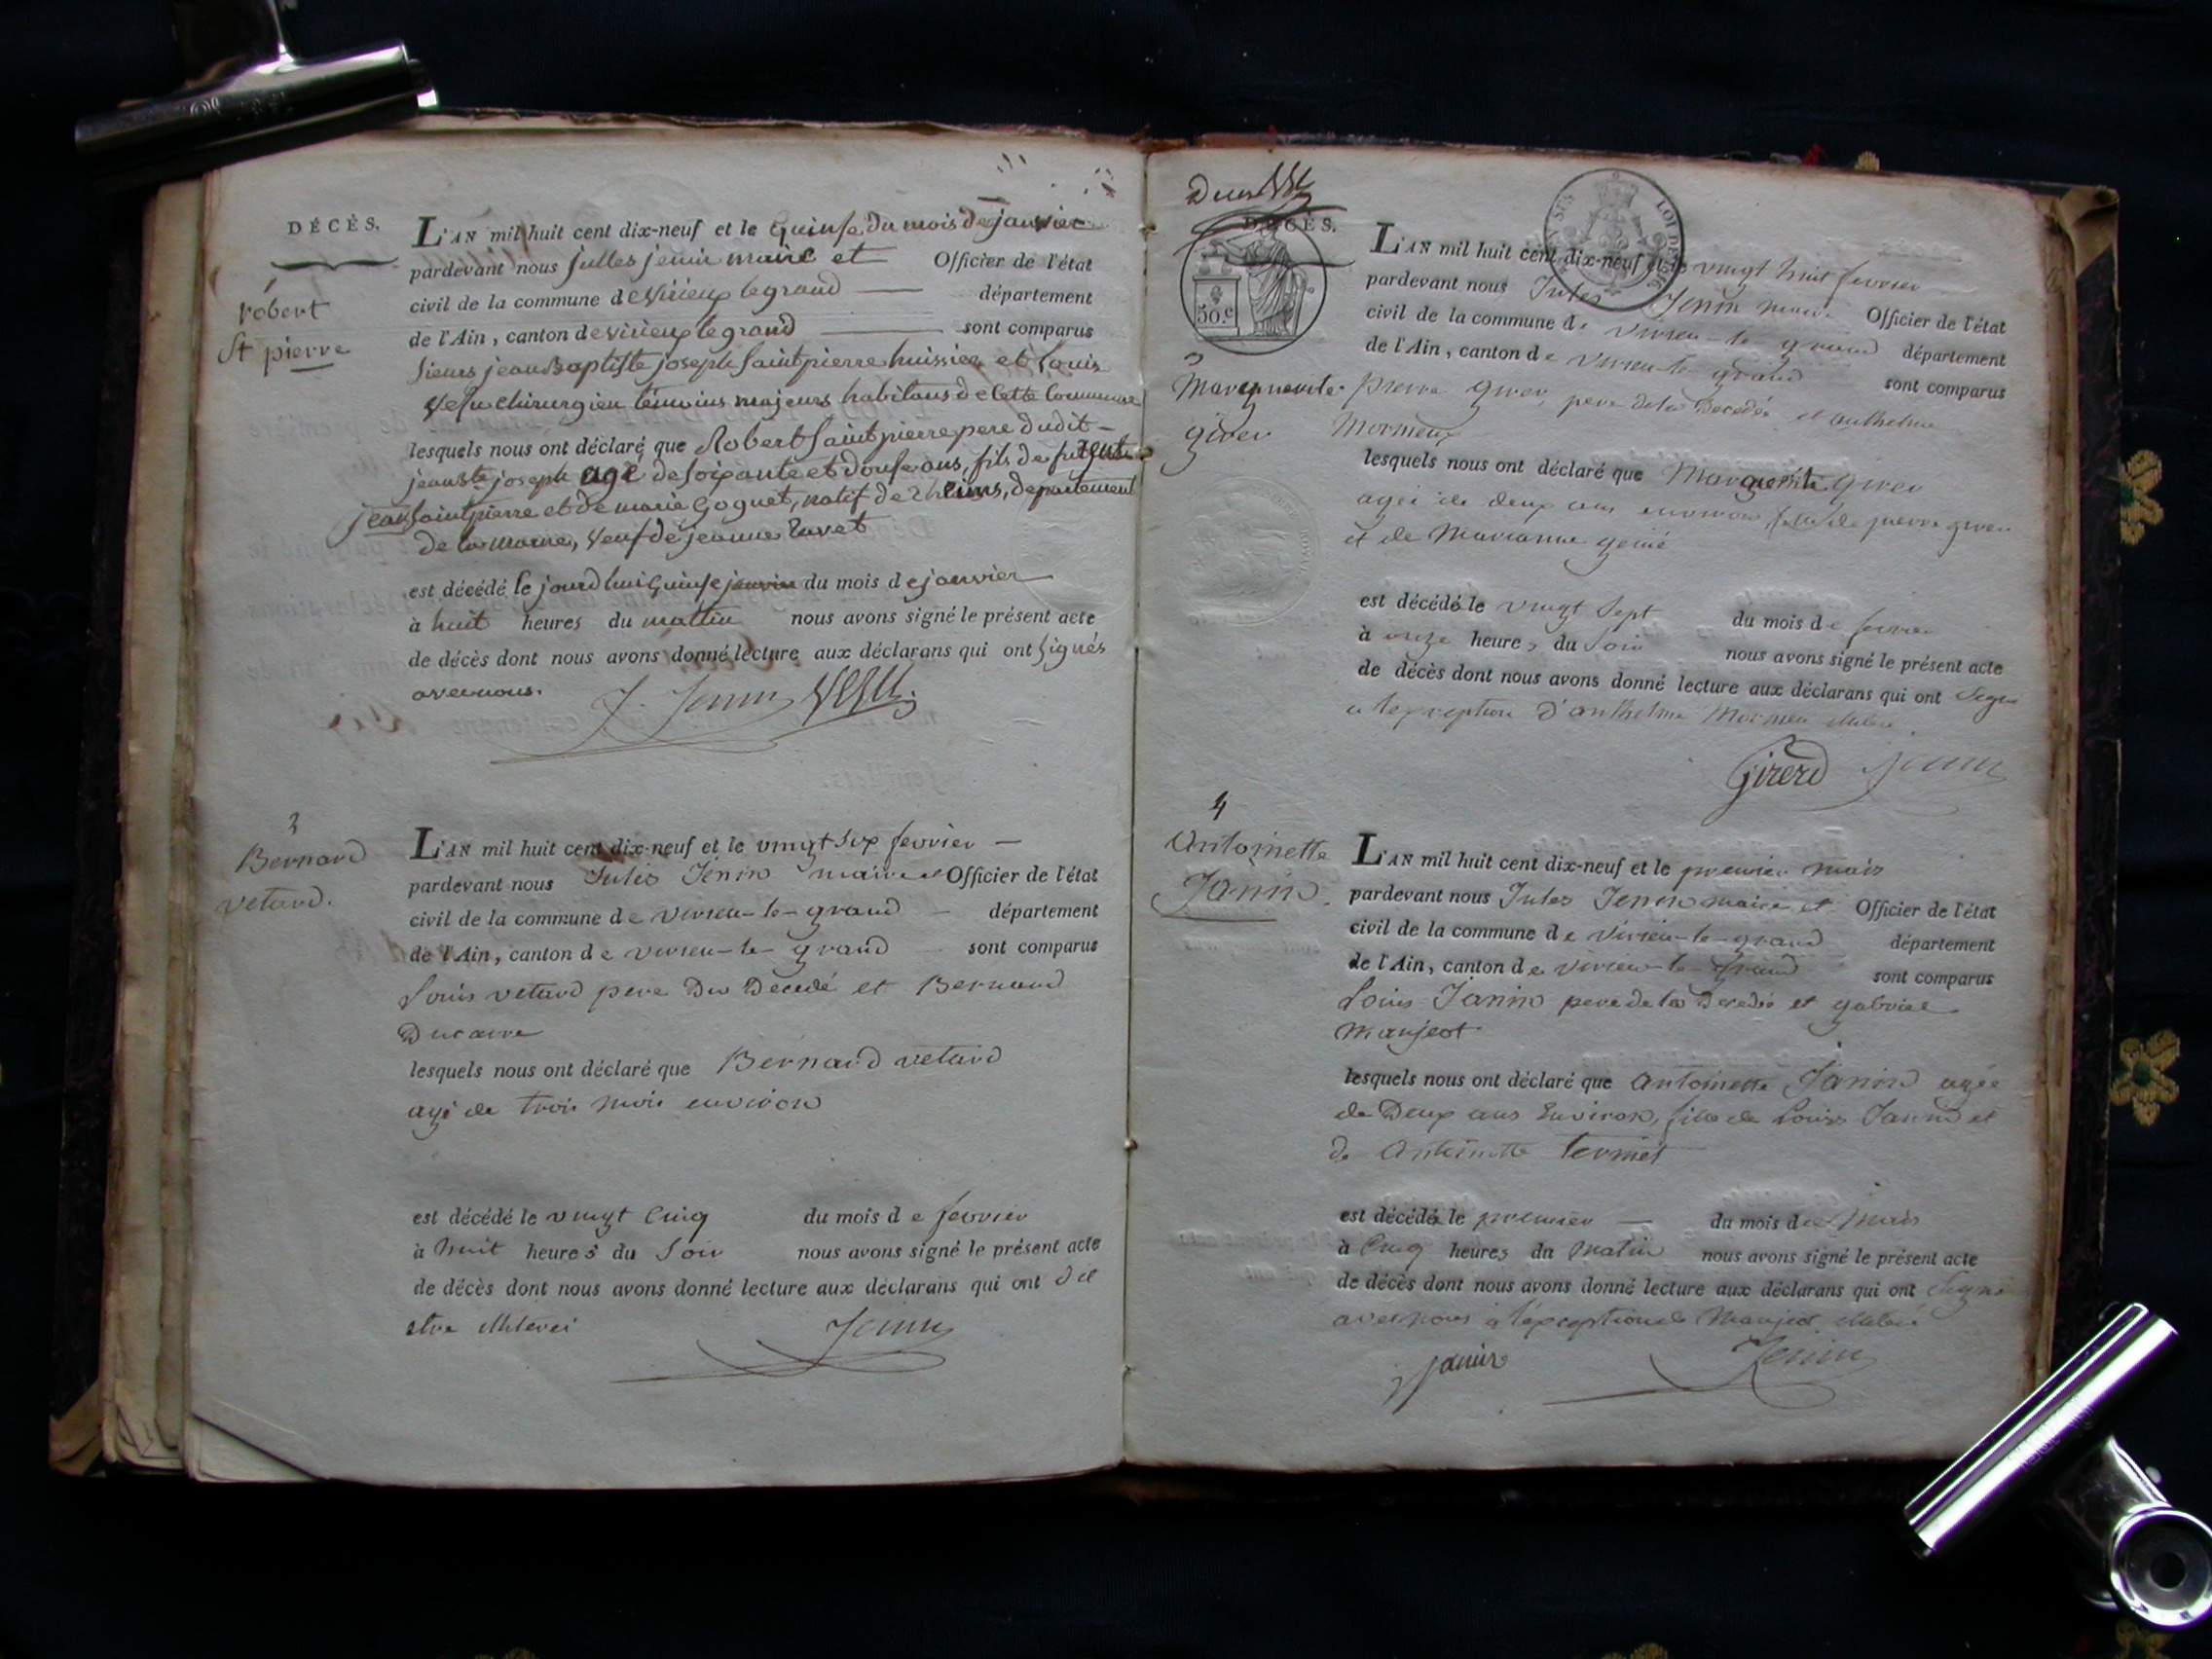 DÉCÈS.
1
robert
St pierre
L'AN mil huit cent dix-neuf et le quinse du mois de janvier
pardevant nous julles jenin maire et Officier de l'état
civil de la commune de virieux le grand département
de l'Ain, canton de virieux le grand sont comparus
sieurs jean Baptiste joseph saint pierre huissier et Louis
chirurgien témoins majeurs habitans de cette commune
lesquels nous ont déclaré que Robert saint pierre pere dudit
jean Bte joseph agé de soixante et douse ans, fils de fut
jean saint pierre et de marie Goguet, natif de rheims, departement
de la marne, veuf de jeanne
est décédé le jourd'hui quinse janvier du mois de janvier
à huit heures du mattin nous avons signé le présent acte
de décès dont nous avons donné lecture aux déclarans qui ont signés
avec nous. J. Jenin
Bernard
vetard.
L'AN mil huit cent dix-neuf et le vingt six fevrier
pardevant nous Jules Jenin maire et Officier de l'état
civil de la commune de virieu-le-grand département
de l'Ain, canton de virieu-le-grand sont comparus
Louis vetard pere du Decedé et Bernard
Ducarre
lesquels nous ont déclaré que Bernard vetard
agé de trois mois environ
est décédé le vingt cinq du mois de fevrier
à huit heures du soir nous avons signé le présent acte
de décès dont nous avons donné lecture aux déclarans qui ont dit
etre illiterés Jenin
DÉCÈS.
50.c
3
Marguerite
girer
L'AN mil huit cent dix-neuf et le vingt huit fevrier
pardevant nous Jules Jenin maire Officier de l'état
civil de la commune de virieu-le-grand département
de l'Ain, canton de virieu-le-grand sont comparus
pierre girer pere de la Decedée et anthelme
Mormeux
lesquels nous ont déclaré que Marguerite girer
agée de deux ans environ fille de pierre girer
et de Marianne
est décédée le vingt sept du mois de fevrier
à onze heures du soir nous avons signé le présent acte
de décès dont nous avons donné lecture aux déclarans qui ont signé
a l'exception d'anthelme
Girerd Jenin
4
Antoinette
Janin.
L'AN mil huit cent dix-neuf et le premier mars
pardevant nous Jules Jenin maire et Officier de l'état
civil de la commune de virieu-le-grand département
de l'Ain, canton de virieu-le-grand sont comparus
Louis Janin pere de la Decedée et gabriel
Manjeot
lesquels nous ont déclaré que antoinette Janin agée
de Deux ans Environ, fille de Louis Janin et
de Antoinette termet
est décédée le premier du mois de Mars
à cinq heures du matin nous avons signé le présent acte
de décès dont nous avons donné lecture aux déclarans qui ont signé
avec nous à l'exception de Manjeot illiteré
janin Jenin